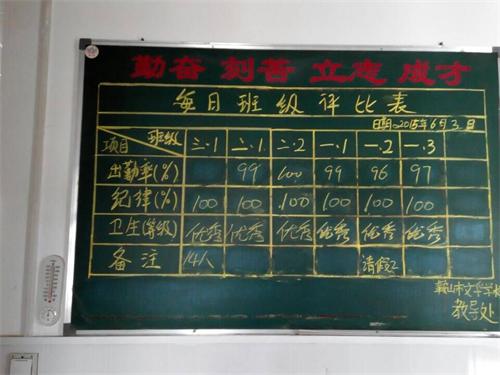 勤奋 刻苦 立志 成才
每日班级评比表
日期:2015年6月3日
项目 班级 三.1 二.1 二.2 一.1 一.2 一.3
出勤率(%) 99 100 99 96 97
纪律(%) 100 100 100 100 100 100
卫生(等级) 优秀 优秀 优秀 优秀 优秀 优秀
备注 14人 请假2
鞍山市文化学校
教导处